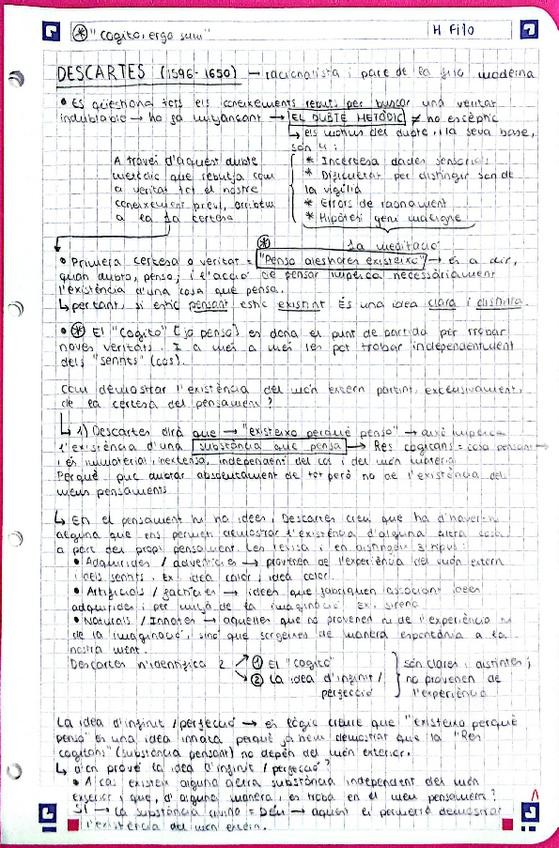 * "Cogito, ergo sum"
H Filo
DESCARTES (1596-1650) → racionalista i pare de la filo moderna
• Es qüestiona tots els coneixements rebuts per buscar una veritat
indubtable → ho fa mitjançant → EL DUBTE METÒDIC ≠ no escèptic
↳ els motius del dubte, i la seva base,
són 4:
* Incertesa dades sensorials
* Dificultat per distingir son de
la vigília
* Errors de raonament
* Hipòtesi geni maligne
A través d'aquest dubte
metòdic que rebutja com
a veritat tot el nostre
coneixement previ, arribem
a la 1a certesa
1a meditació
• Primera certesa o veritat = * "Penso aleshores existeixo" → és a dir,
quan dubto, penso; i l'acció de pensar implica necessàriament
l'existència d'una cosa que pensa.
↳ pertant, si estic pensant estic existint. És una idea clara i distinta.
• * El "Cogito" (jo penso) es dona el punt de partida per trobar
noves veritats. I a més a més les pot trobar independentment
dels "sentits" (cos).
Com demostrar l'existència del món extern partint, exclusivament,
de la certesa del pensament?
↳ 1) Descartes dirà que → "existeixo perquè penso" → això implica
l'existència d'una substància que pensa → Res cogitans = cosa pensant →
i és immaterial, inextensa, independent del cos i del món material.
Perquè puc dubtar absolutament de tot però no de l'existència del
meus pensaments.
↳ En el pensament hi ha idees, Descartes creu que ha d'haver-hi
alguna que ens permeti demostrar l'existència d'alguna altra cosa
a part del propi pensament. Les revisa i en distingeix 3 tipus:
• Adquirides / adventícies → provenen de l'experiència del món extern
i dels sentits. Ex. idea calor, idea color.
• Artificials / factícies → idees que fabriquen associant idees
adquirides i per mitjà de la imaginació. Ex. sirena
• Naturals / Innates → aquelles que no provenen ni de l'experiència ni
de la imaginació, sinó que sorgeixen de manera espontània a la
nostra ment.
Descartes n'identifica 2
① El "cogito"
② La idea d'infinit /
perfecció
són clares i distintes;
no provenen de
l'experiència
La idea d'infinit / perfecció → és lògic creure que "existeixo perquè
penso" és una idea innata perquè ja hem demostrat que la "Res
cogitans" (substància pensant) no depèn del món exterior.
↳ D'on prové la idea d'infinit / perfecció?
• Acàs existeix alguna altra substància independent del món
exterior i que, d'alguna manera, es troba en el meu pensament?
Sí → La substància divina = Déu → aquest el permetrà demostrar
l'existència del món extern.
1